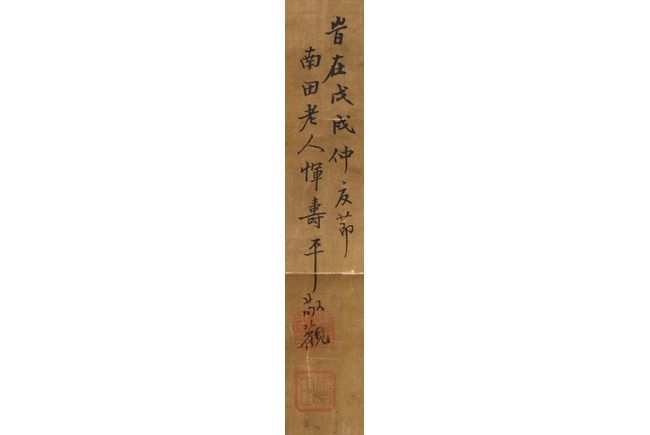 旹在戊戌仲夏節
南田老人惲壽平敬觀